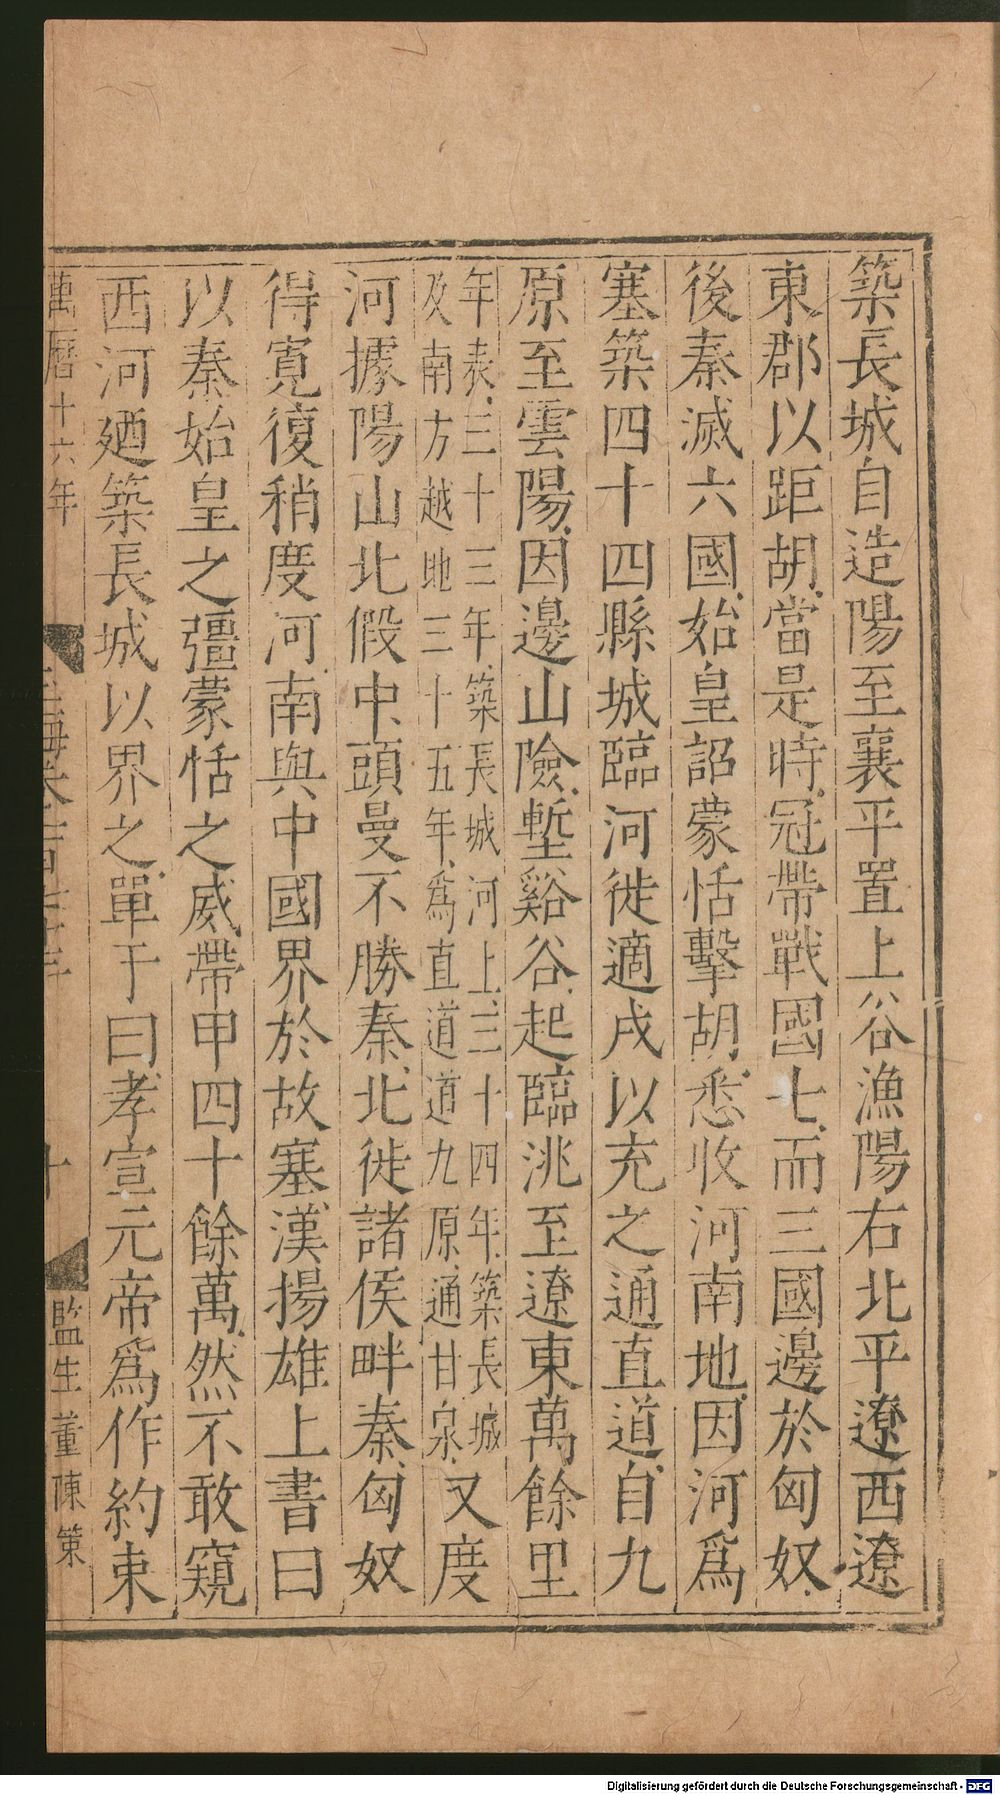 築長城自造陽至襄平置上谷漁陽右北平遼西遼
東郡以距胡當是時冠帶戰國七而三國邊於匈奴
後秦滅六國始皇詔蒙恬擊胡悉收河南地因河爲
塞築四十四縣城臨河徙適戍以充之通直道自九
原至雲陽因邊山險塹谿谷起臨洮至遼東萬餘里
年表三十三年築長城河上三十四年築長城
及南方越地三十五年爲直道道九原通甘泉
又度
河據陽山北假中頭曼不勝秦北徙諸侯畔秦匈奴
得寬復稍度河南與中國界於故塞漢揚雄上書曰
以秦始皇之彊蒙恬之威帶甲四十餘萬然不敢窺
西河廼築長城以界之單于曰孝宣元帝爲作約束
萬曆十六年
十
監生董陳策
Digitalisierung gefördert durch die Deutsche Forschungsgemeinschaft - DFG